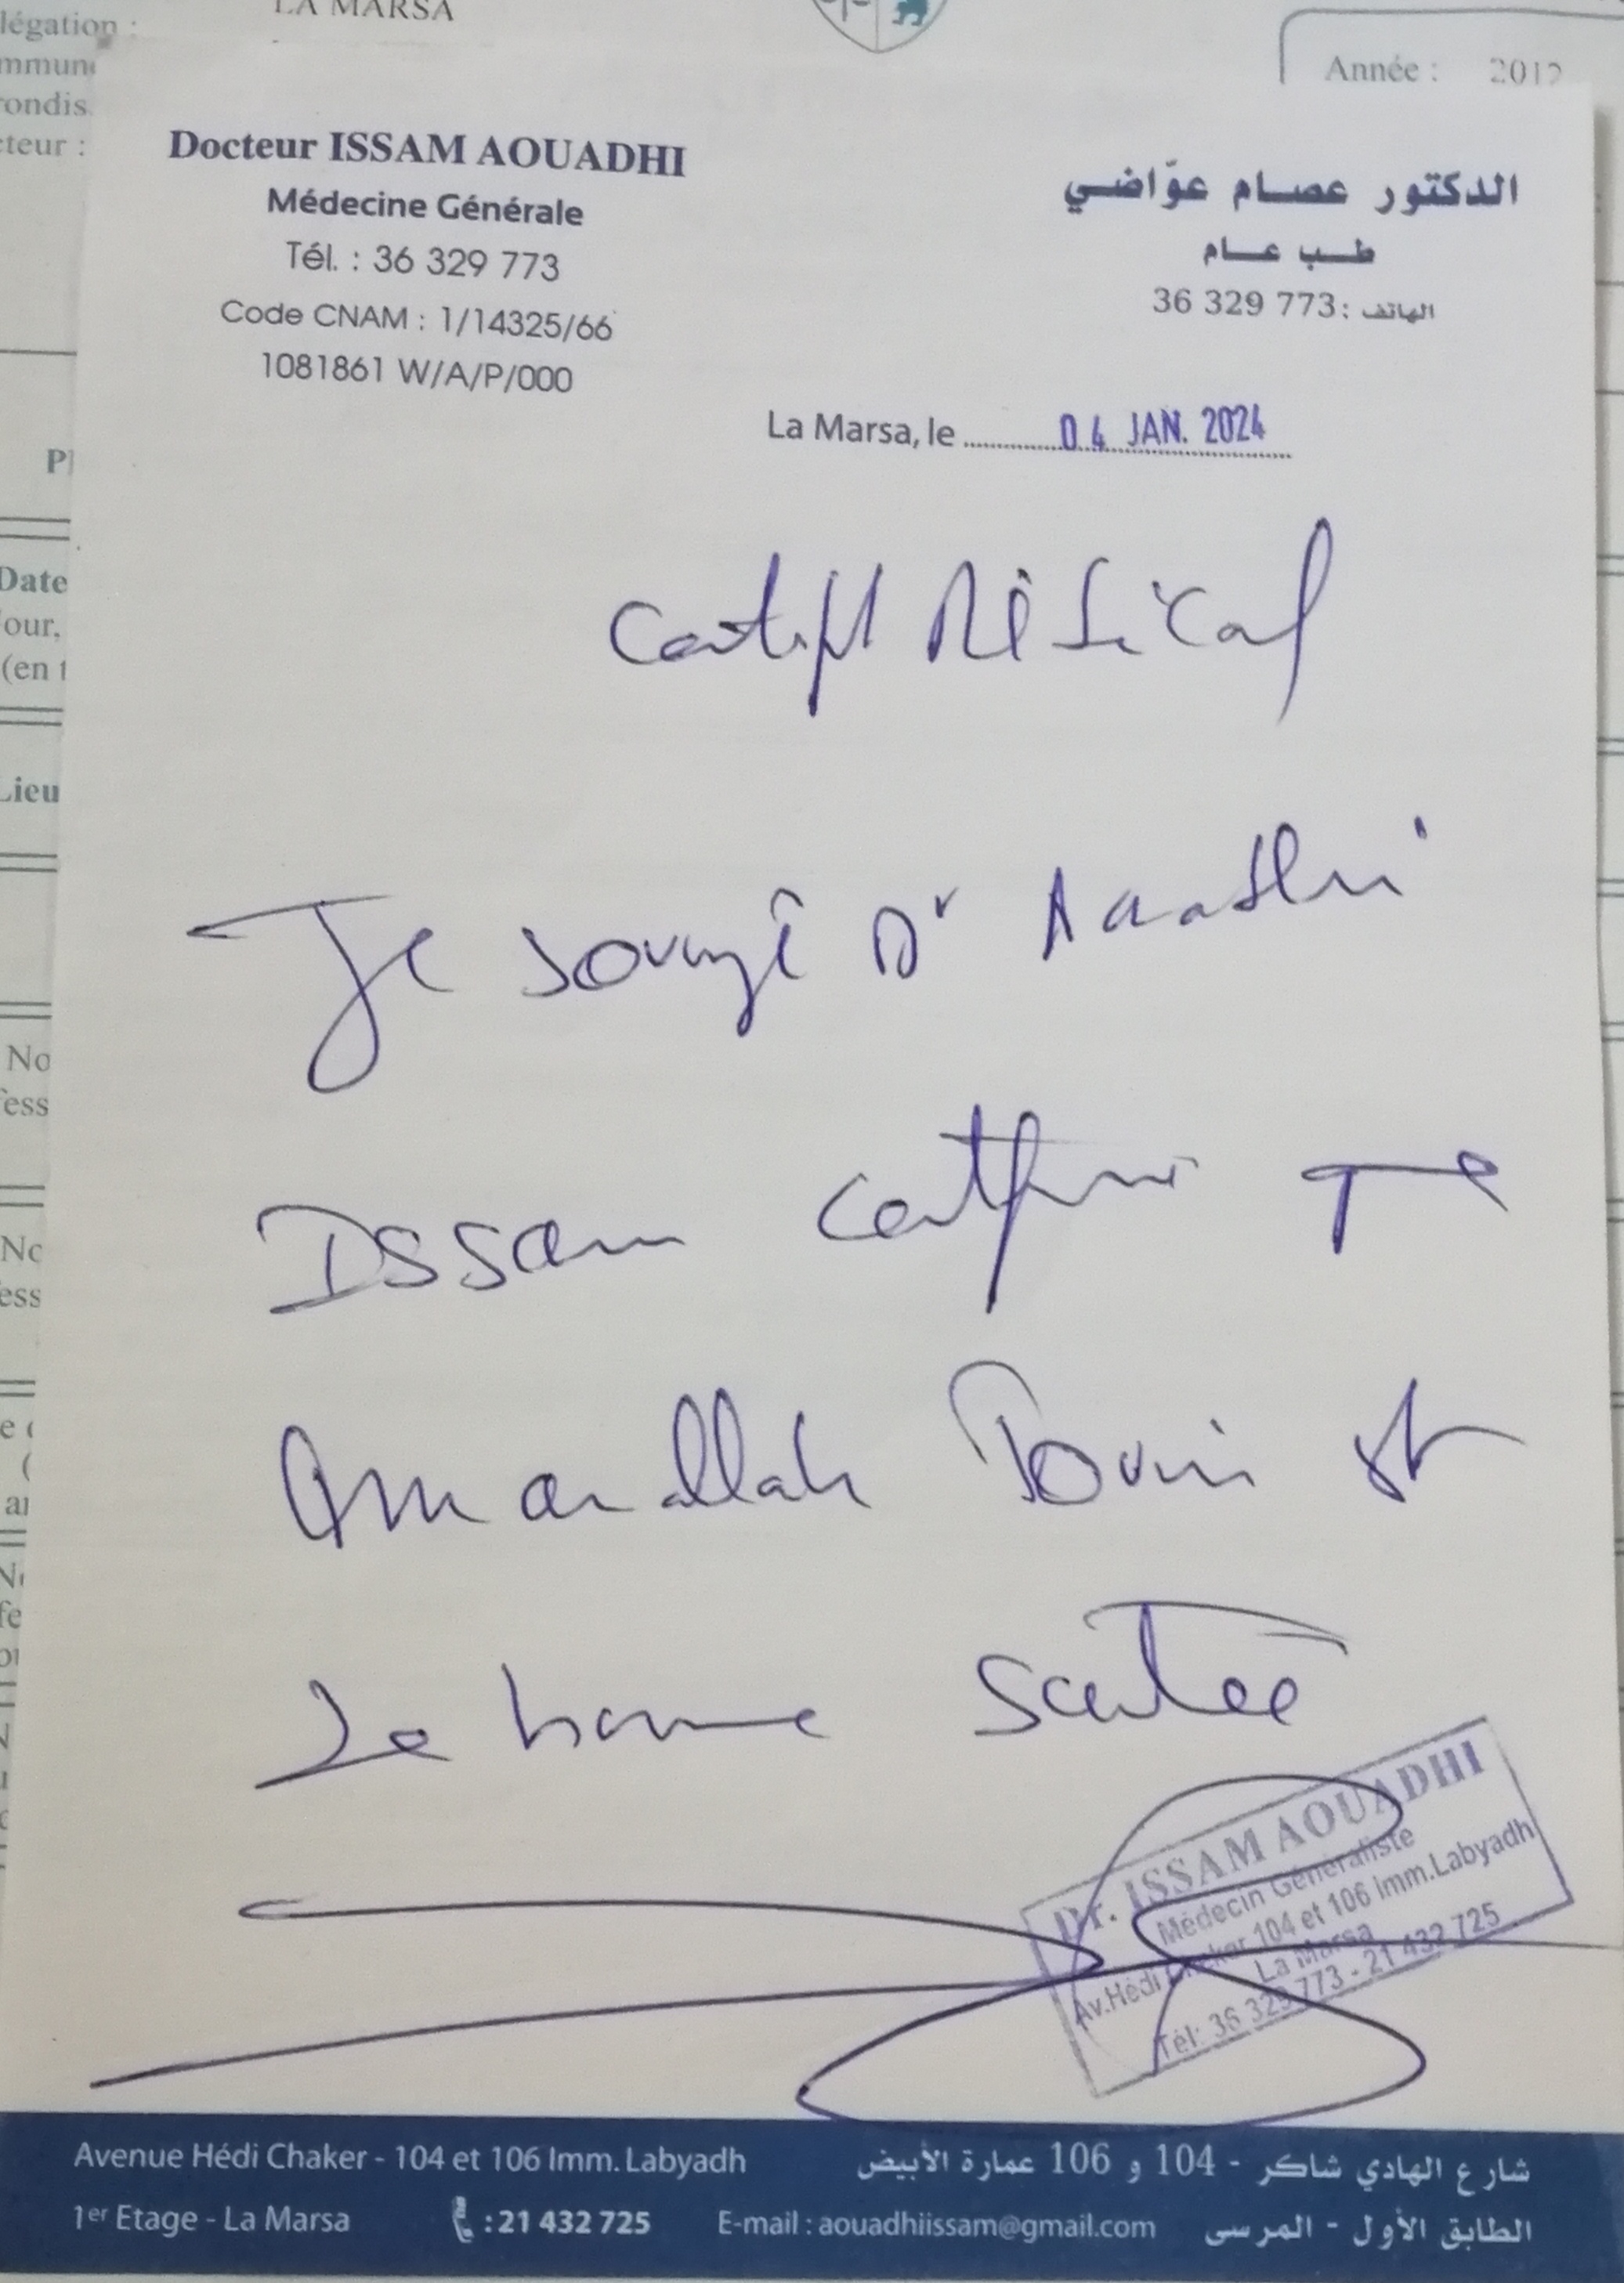 légation :
LA MARSA
Année : 2012
Docteur ISSAM AOUADHI
Médecine Générale
Tél. : 36 329 773
Code CNAM : 1/14325/66
1081861 W/A/P/000
الدكتور عصام عوّاضي
طب عام
الهاتف : 36 329 773
La Marsa, le 04 JAN. 2024
Certifit Médical
Je soussigné Dr Aouadhi
Issam certifie que
Amanallah Touni est
de bonne Santée
Dr. ISSAM AOUADHI
Médecin Généraliste
Av.Hédi Chaker 104 et 106 Imm.Labyadh
La Marsa
Tél: 36 329 773 - 21 432 725
Avenue Hédi Chaker - 104 et 106 Imm. Labyadh
1er Etage - La Marsa : 21 432 725 E-mail : aouadhiissam@gmail.com
شارع الهادي شاكر - 104 و 106 عمارة الأبيض
الطابق الأول - المرسى